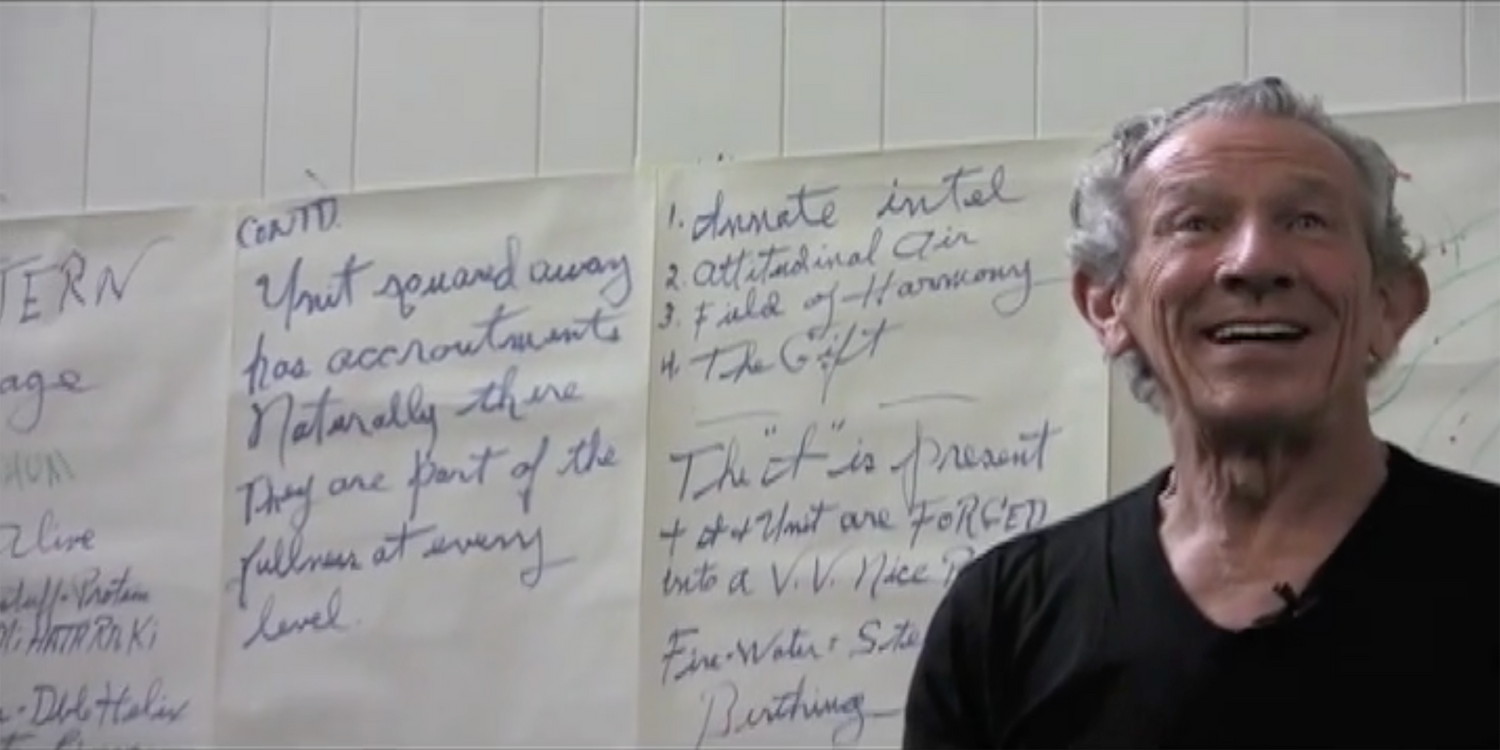 TERN
age
HUM
Alive
stuff-Protein
Dbl Helix
CONT'D.
Unit squared away
has accroutments
Naturally there
They are part of the
fullness at every
level.
1. Annate intel
2. Attitudinal Air
3. Field of Harmony
4. The Gift
The "it" is present
+ it + Unit are FORGED
into a V.V. Nice
Fire-Water + Ste
Birthing